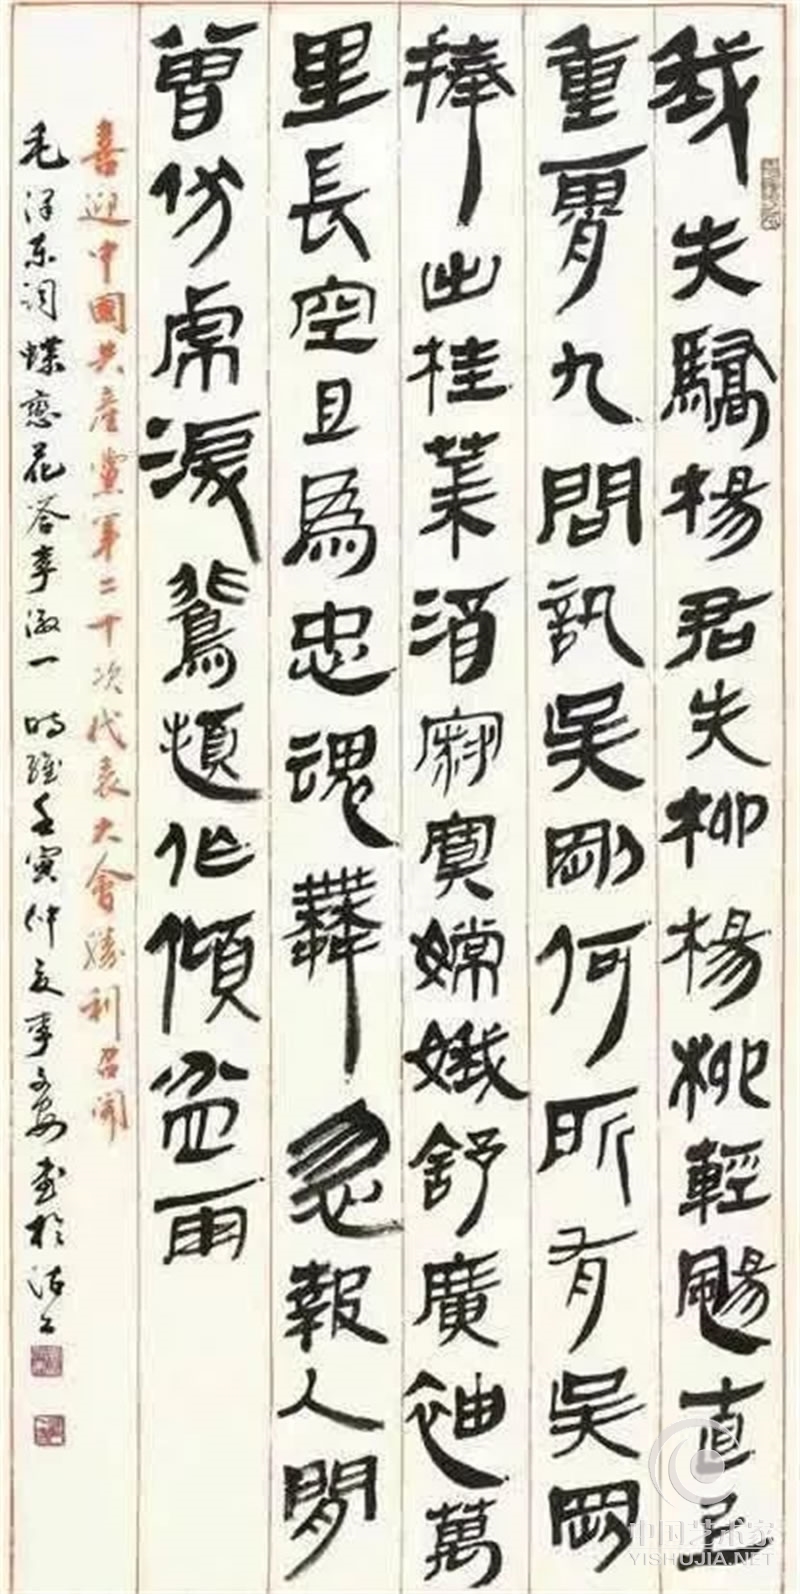 我失驕楊君失柳楊柳輕颺直上
重霄九問訊吳剛何所有吳剛
捧出桂酒寂寞嫦娥舒廣袖萬
里長空且爲忠魂舞忽報人間
曾伏虎淚飛頓作傾盆雨
喜迎中國共產黨第二十次代表大會勝利召開
毛澤東詞蝶戀花答李淑一 時維壬寅仲夏書於沽上
中国艺术家
YISHUJIA.NET